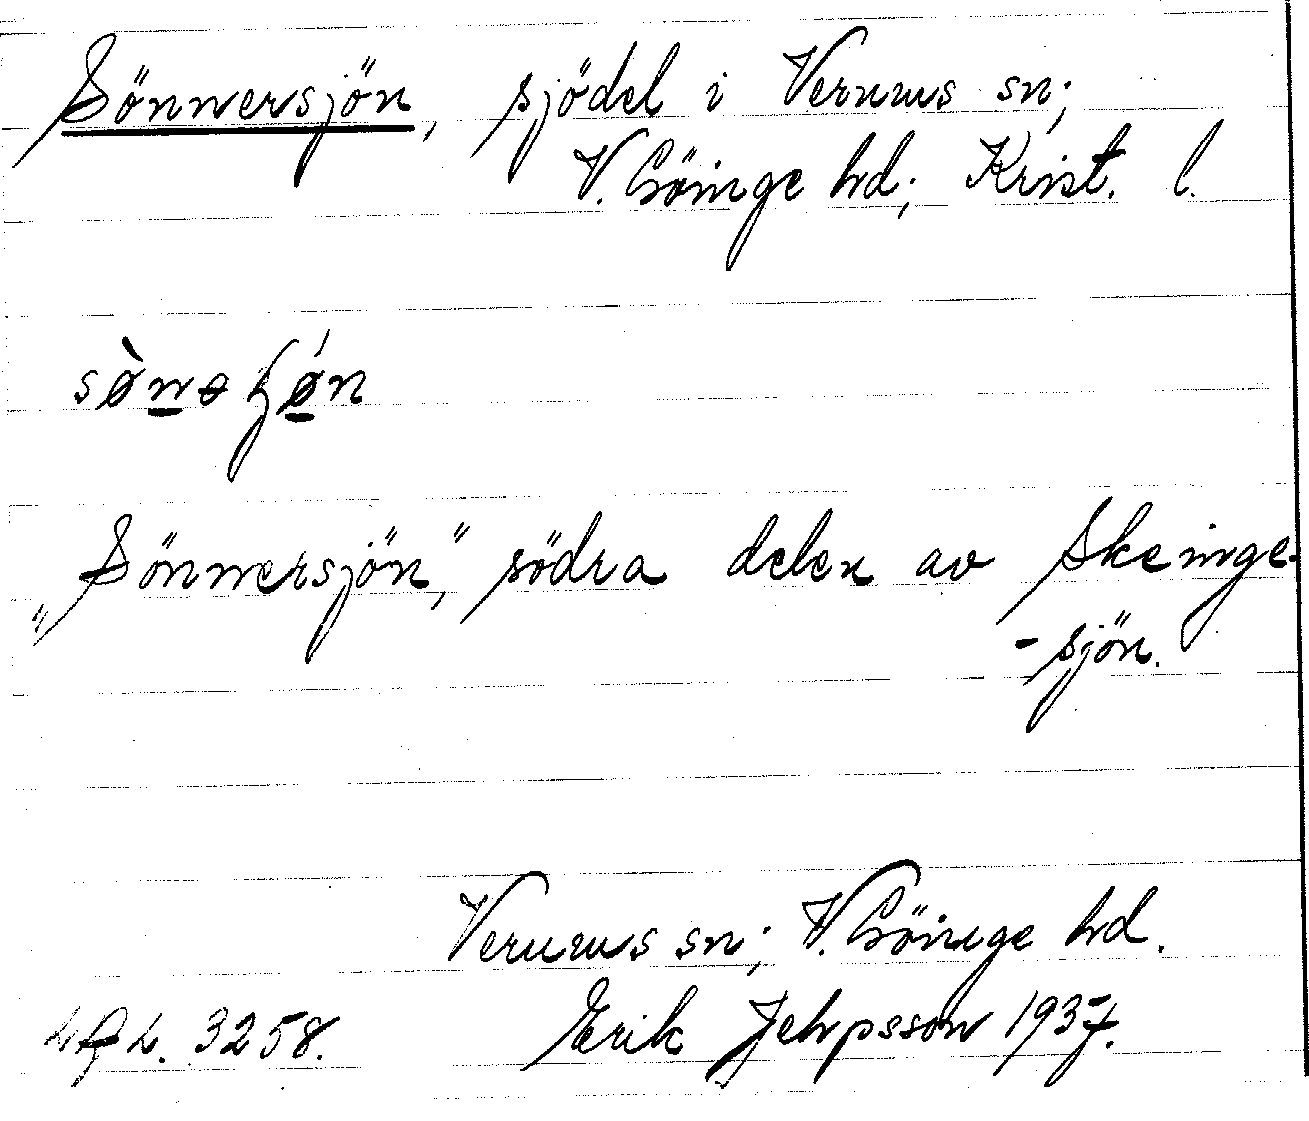 Sönnersjön, sjödel i Verums sn;
V. Göinge hd; Krist. l.
"Sönnersjön", södra delen av Skeinge-
-sjön.
Verums sn; V. Göinge hd.
3258. Erik Jehpsson 1937.